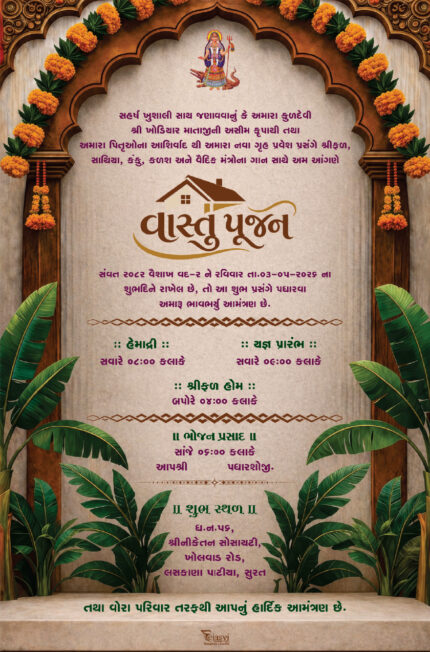 સહર્ષ ખુશાલી સાથ જણાવવાનું કે અમારા કુળદેવી
શ્રી ખોડિયાર માતાજીની અસીમ કૃપાથી તથા
અમારા પિતૃઓના આશિર્વાદ થી અમારા નવા ગૃહ પ્રવેશ પ્રસંગે શ્રીફળ,
સાથિયા, કંકુ, કળશ અને વૈદિક મંત્રોના ગાન સાથે અમ આંગણે
વાસ્તુ પૂજન
સંવત ૨૦૮૨ વૈશાખ વદ-૨ ને રવિવાર તા.૦૩-૦૫-૨૦૨૬ ના
શુભદિને રાખેલ છે, તો આ શુભ પ્રસંગે પધારવા
અમારૂ ભાવભર્યુ આમંત્રણ છે.
:: હેમાદ્રી :: :: યજ્ઞ પ્રારંભ ::
સવારે ૦૮:૦૦ કલાકે સવારે ૦૯:૦૦ કલાકે
:: શ્રીફળ હોમ ::
બપોરે ૦૪:૦૦ કલાકે
॥ ભોજન પ્રસાદ ॥
સાંજે ૦૬:૦૦ કલાકે
આપશ્રી પધારશોજી.
॥ શુભ સ્થળ ॥
ઘ.ન.૫૬,
શ્રીનીકેતન સોસાયટી,
ખોલવાડ રોડ,
લસકાણા પાટીયા, સુરત
તથા વોરા પરિવાર તરફથી આપનું હાર્દિક આમંત્રણ છે.